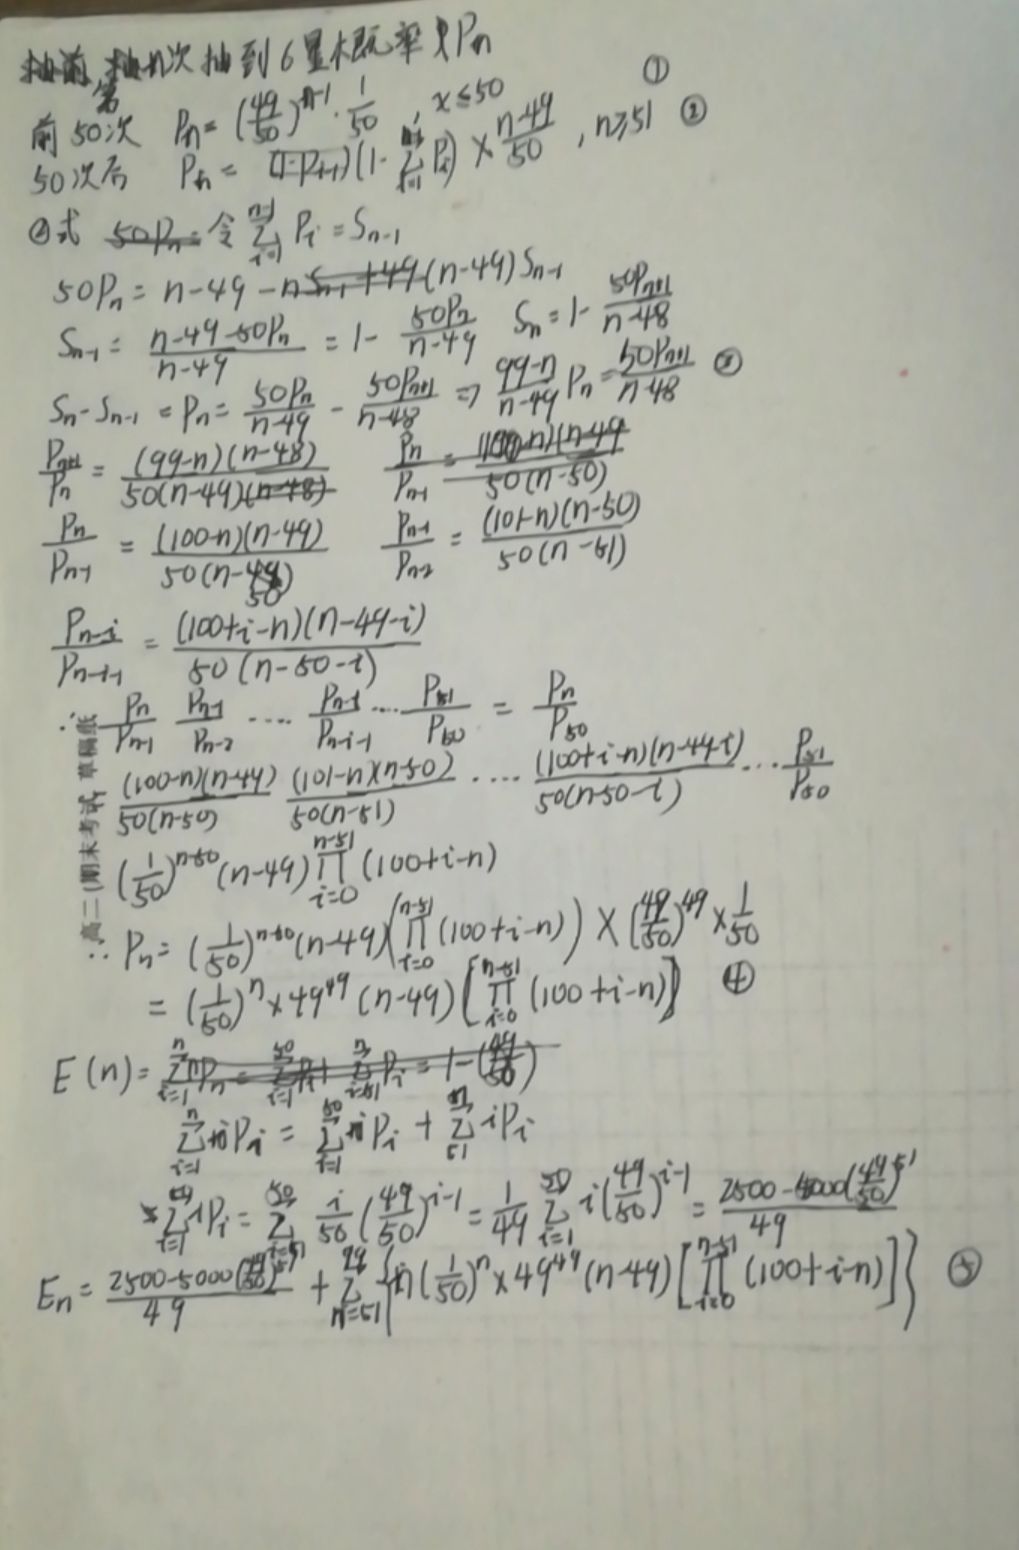 第n次抽到6星概率是Pn
①
前50次 Pn = (49/50)^{n-1} · 1/50, x≤50
50次后 Pn = (1 - Σ_{i=1}^{n-1} Pi) × (n-49)/50, n≥51 ②
②式 令 Σ_{i=1}^{n-1} Pi = S_{n-1}
50Pn = n-49 - (n-49)S_{n-1}
S_{n-1} = (n-49-50Pn)/(n-49) = 1 - 50Pn/(n-49) Sn = 1 - 50P_{n+1}/(n-48)
Sn - S_{n-1} = Pn = 50Pn/(n-49) - 50P_{n+1}/(n-48) ⇒ (99-n)/(n-49) Pn = 50P_{n+1}/(n-48) ③
P_{n+1}/Pn = (99-n)(n-48)/50(n-49)
Pn/P_{n-1} = (100-n)(n-49)/50(n-50) P_{n-1}/P_{n-2} = (101-n)(n-50)/50(n-51)
P_{n-i}/P_{n-i-1} = (100+i-n)(n-49-i)/50(n-50-i)
∴ Pn/P_{n-1} P_{n-1}/P_{n-2} ···· P_{n-i}/P_{n-i-1} ··· P51/P50 = Pn/P50
(100-n)(n-49)/50(n-50) (101-n)(n-50)/50(n-51) ···· (100+i-n)(n-49-i)/50(n-50-i) ··· P51/P50
(1/50)^{n-50} (n-49) Π_{i=0}^{n-51} (100+i-n)
∴ Pn = (1/50)^{n-50} (n-49) (Π_{i=0}^{n-51} (100+i-n)) × (49/50)^{49} × 1/50
= (1/50)^n × 49^{49} (n-49) [Π_{i=0}^{n-51} (100+i-n)] ④
E(n) =
Σ_{i=1}^{n} iPi = Σ_{i=1}^{50} iPi + Σ_{51} iPi
Σ_{i=1}^{50} iPi = Σ_{i=1}^{50} i/50 (49/50)^{i-1} = 1/49 Σ_{i=1}^{50} i(49/50)^{i-1} = (2500-5000(49/50)^{51})/49
En = (2500-5000(49/50)^{51})/49 + Σ_{n=51}^{99} {n(1/50)^n × 49^{49} (n-49) [Π_{i=0}^{n-51} (100+i-n)]} ⑤
高二(期末考试 草稿纸